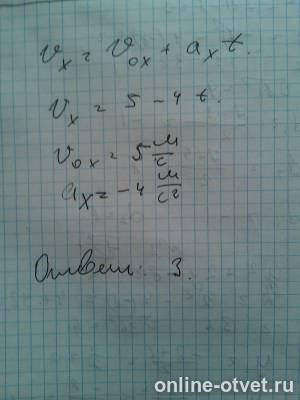 Vx = Vox + axt.
Vx = 5 - 4t.
Vox = 5 м/с
ax = -4 м/с²
Ответ: 3.
online-otvet.ru